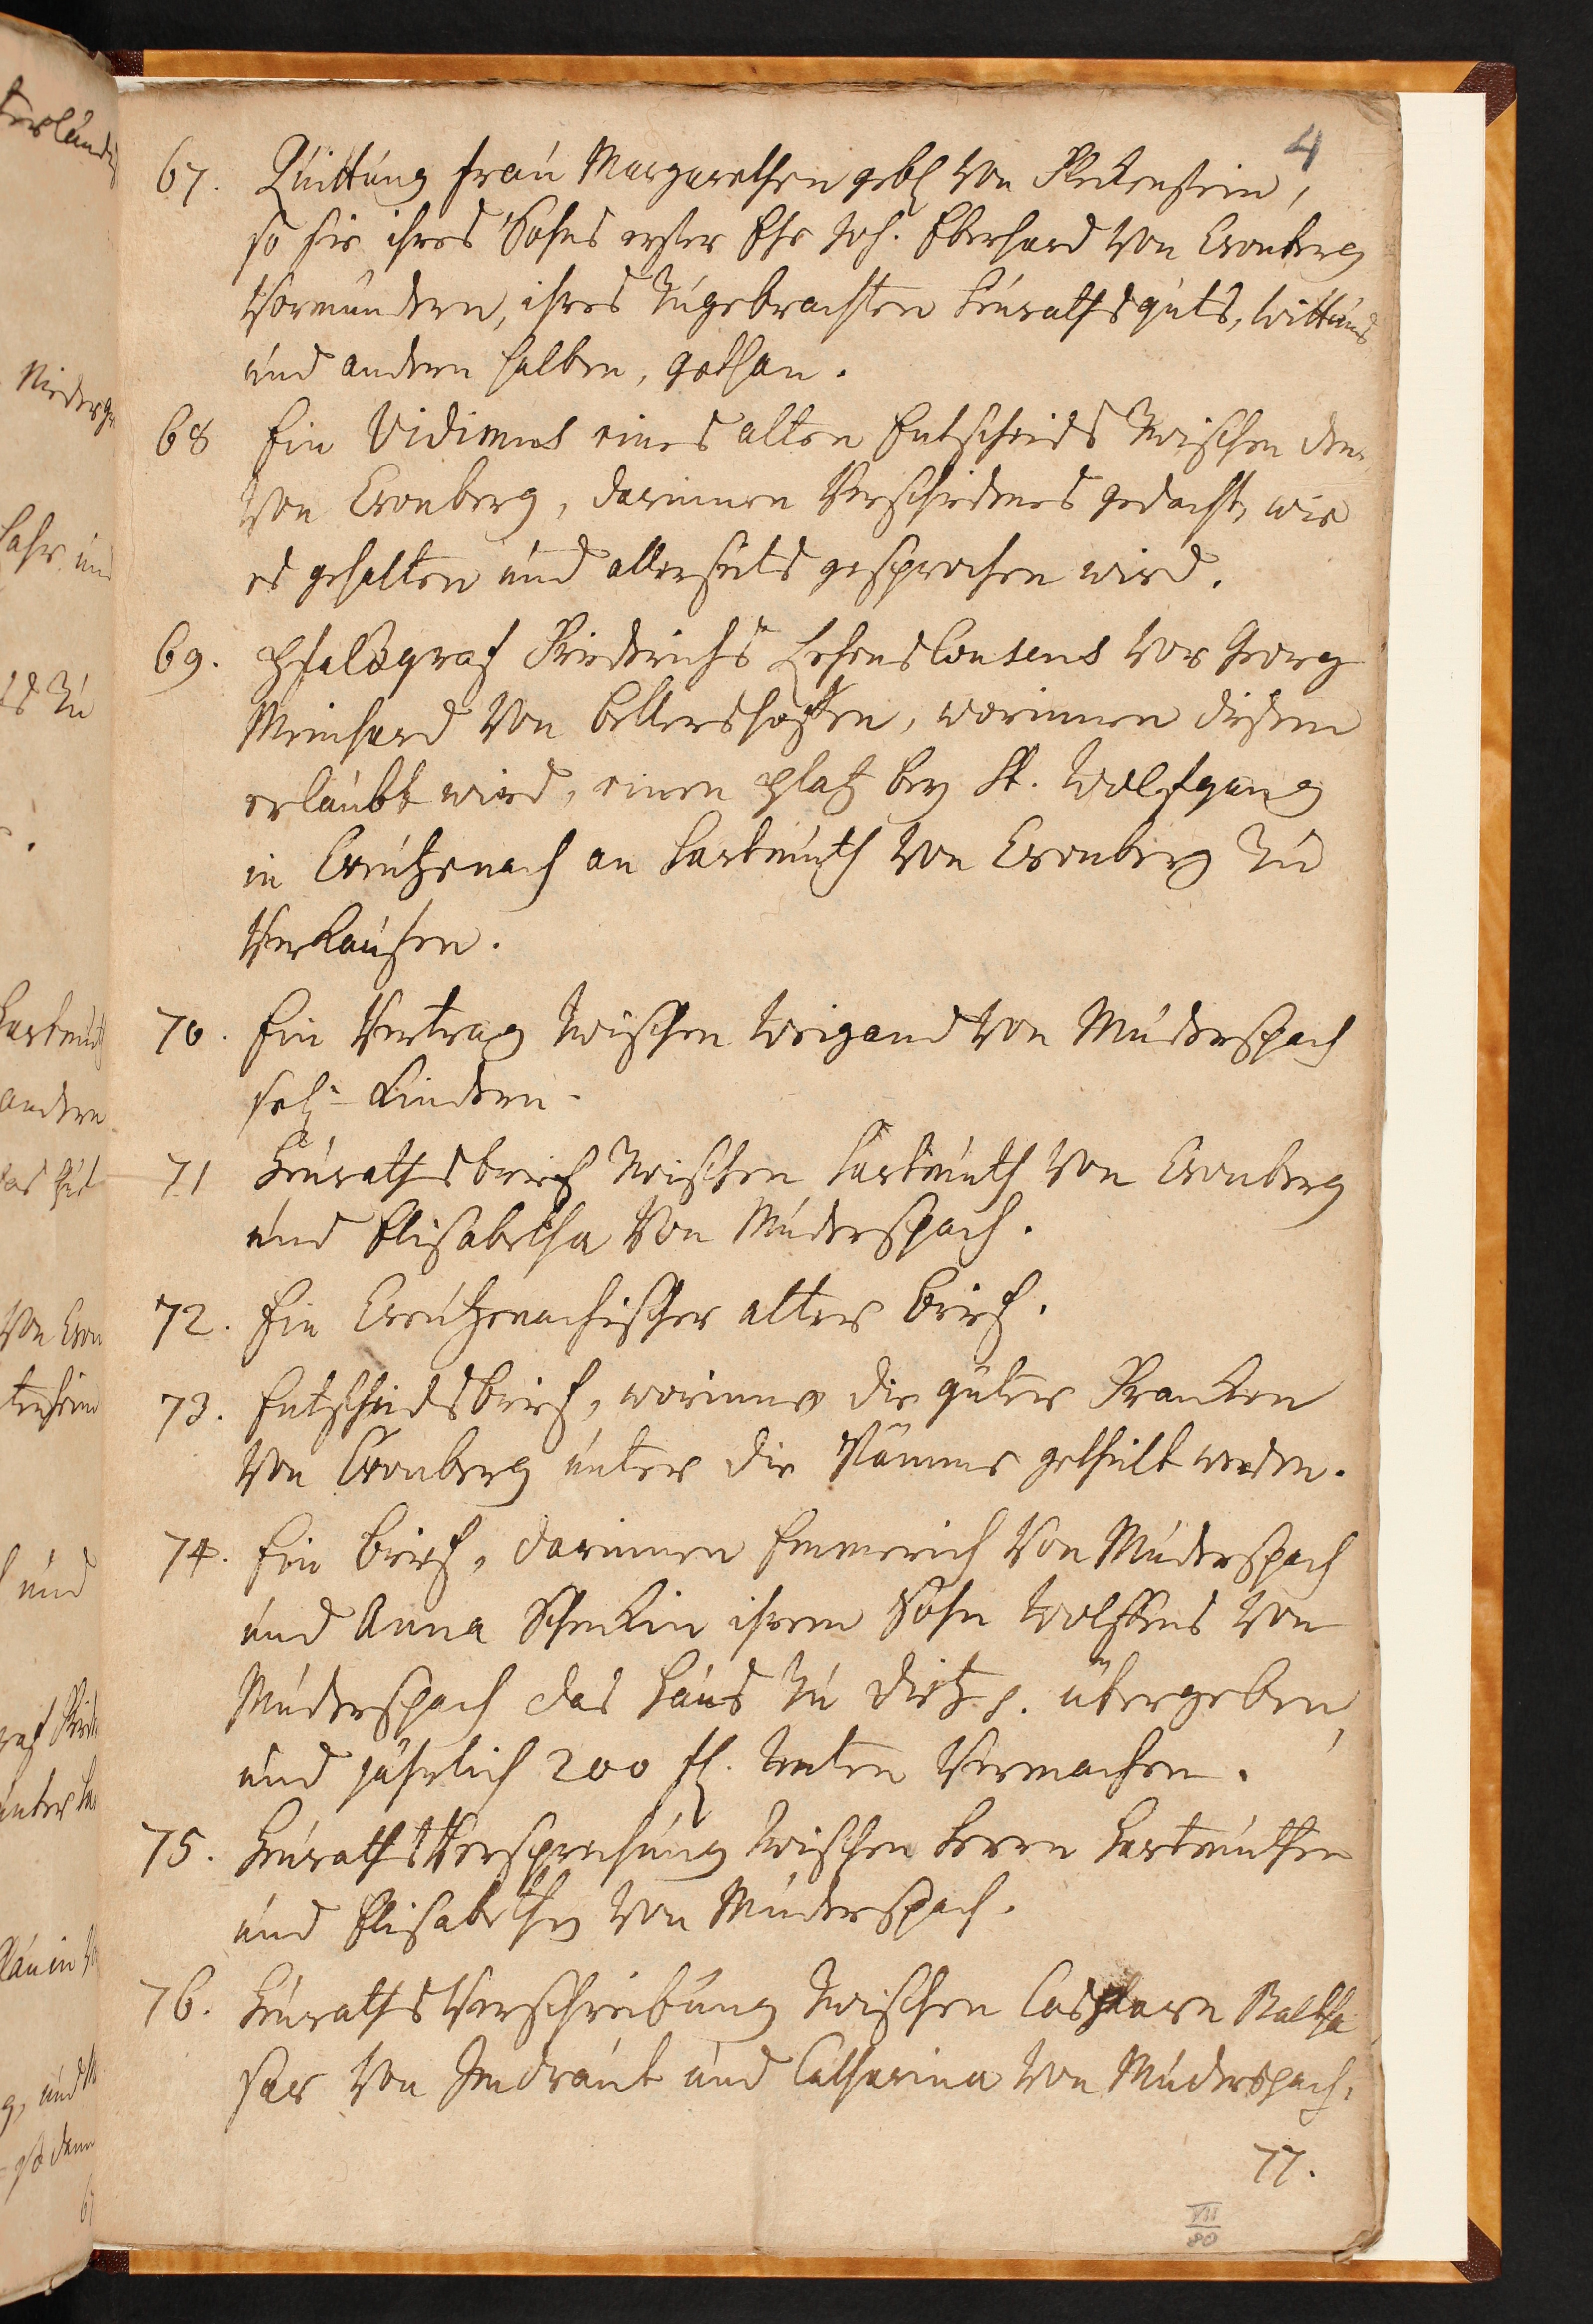 4
67. Quittung Frau Margarethen geb. von Fleckenstein,
so sie ihres Sohns erster Ehe Joh. Eberhard von Cronberg
Vormündern, ihres zugebrachten Heuraths guts, Witthums
und andern halben, gethan.
68 Ein Vidimus eines alten Entscheids zwischen den
von Cronberg, darinnen Verschiedenes gedacht, wie
es gehalten und allerseits gesprochen wird.
69. Pfalzgraf Friderichs Lehens Consens vor Georg
Meinhard von Bellersheim, worinnen diesem
erlaubt wird, einen Platz bey St. Wolfgang
in Creutzenach an Hartmuth von Cronberg zu
Verkaufen.
70. Ein Vertrag zwischen Weigand von Muderspach
sel. Kindern.
71 Heurathsbrief zwischen Hartmuth von Cronberg
und Elisabetha von Muderspach.
72. Ein Creutzenachischer alter Brief.
73. Entscheidsbrief, worinnen die güter Francken
von Cronberg unter die Stämme getheilt werden.
74. Ein Brief, darinnen Emmerich von Muderspach
und Anna Schenckin ihrem Sohn Wolffens von
Muderspach das Haus zu Dietz p. übergeben,
und jährlich 200 fl. Renten Vermachen.
75. Heuraths Versprechung zwischen Herrn Hartmuthen
und Elisabethen von Muderspach.
76. Heuraths Verschreibung zwischen Casparn Baltha
sar von Jmdraut und Catharina von Muderspach.
77.
VII
80